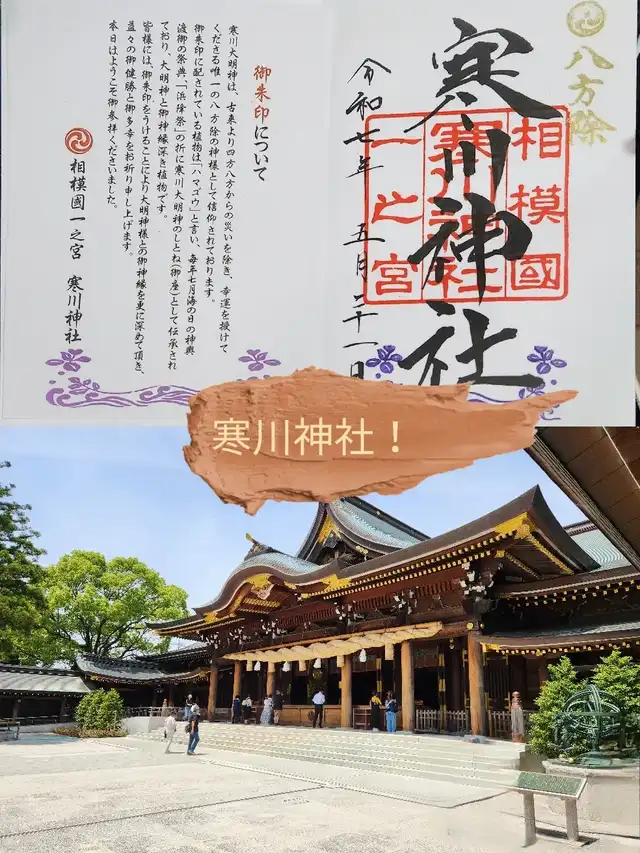 八方除
寒川神社
相模國
寒川神社
一之宮
令和七年 五月二十一日
御朱印について
寒川大明神は、古来より四方八方からの災いを除き、幸運を授けて
くださる唯一の八方除の神様として信仰されております。
御朱印に配されている植物は「ハマゴウ」と言い、毎年七月海の日の神輿
渡御の祭典、「浜降祭」の折に寒川大明神のしとね(御座)として伝承され
ており、大明神と御神縁深き植物です。
皆様には、御朱印をうけることにより大明神様との御神縁を更に深めて頂き、
益々の御健勝と御多幸をお祈り申し上げます。
本日はようこそ御参拝くださいました。
相模國一之宮 寒川神社
寒川神社！